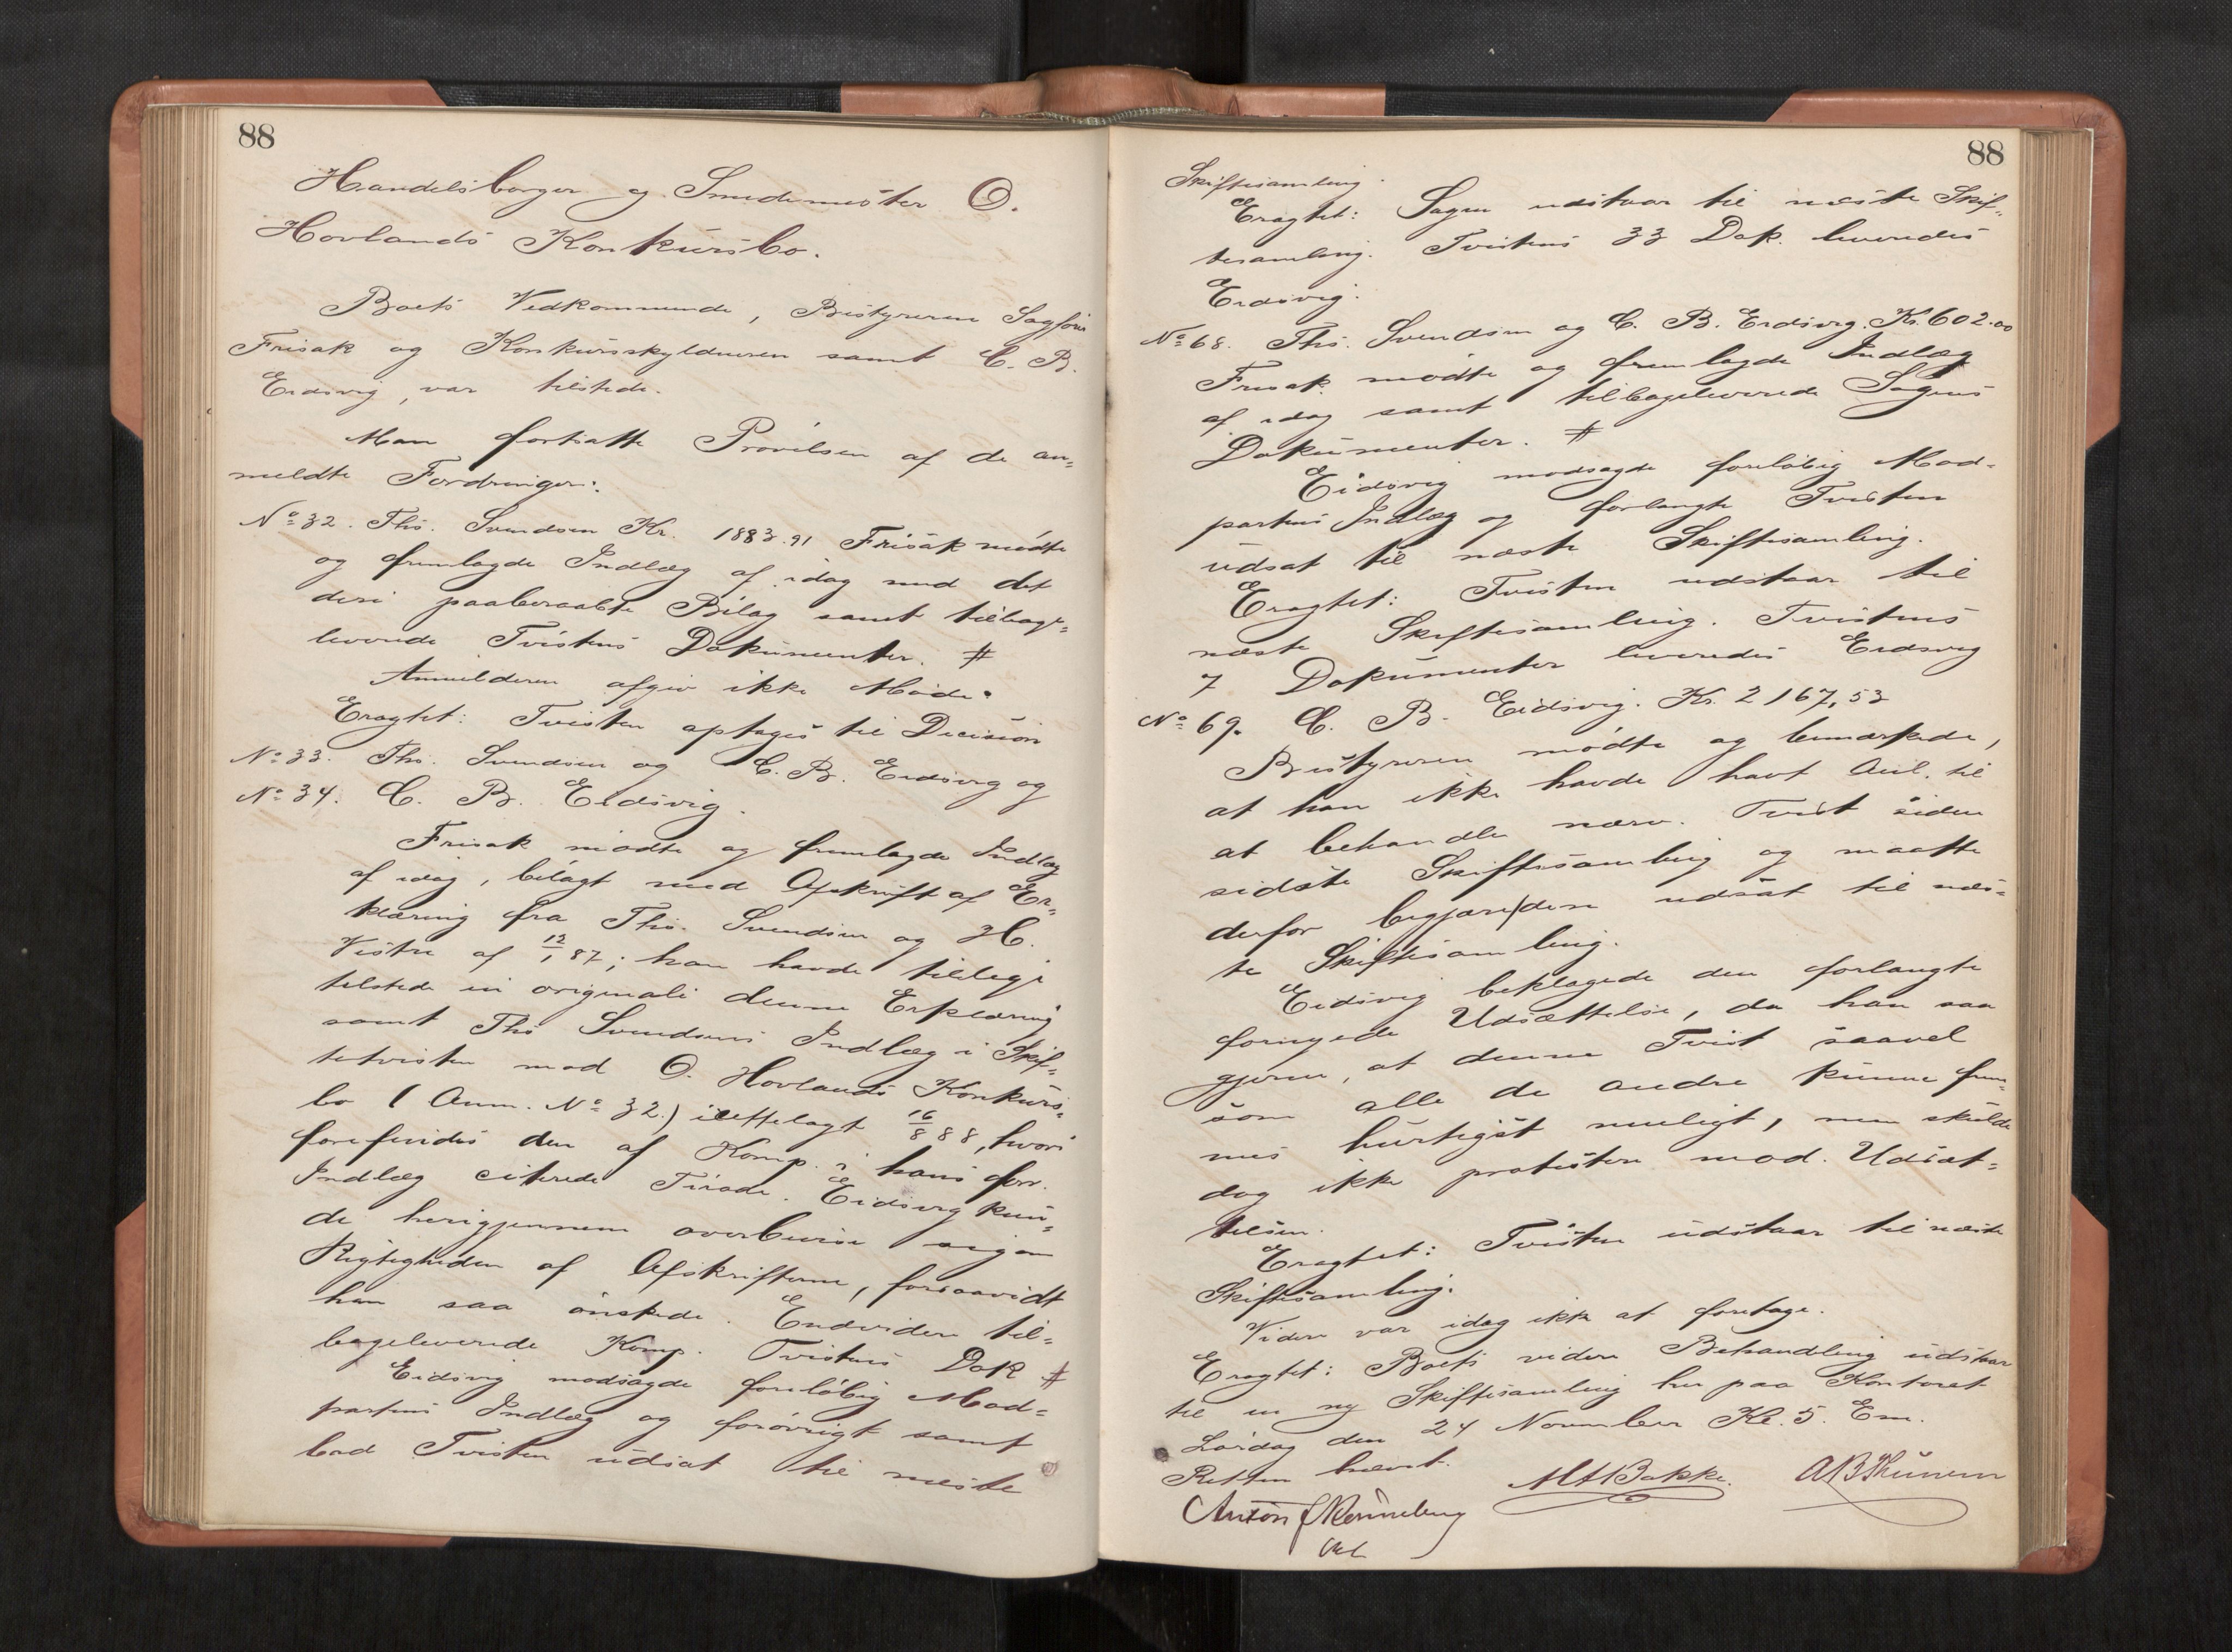 88
Handelsborger og Smedemester O.
Hovlands Konkursbo.
Boets Vedkommende, Bestyreren Sagfører
Frisak og Konkursskyldneren samt C. B.
Eidsvig, var tilstede.
Man fortsatte Prøvelsen af de an-
meldte Fordringer:
No 32. Ths. Svendsen Kr. 1883.91 Frisak mødte
og fremlagde Indlæg af idag med det
deri paaberaabte Bilag samt tilbage-
leverede Tvistens Dokumenter. #
Anmelderen afgiv ikke Møde.
Eragtet: Tvisten optages til Decision
No 33. Ths. Svendsen og C. B. Eidsvig og
No 34. C. B. Eidsvig.
Frisak mødte og fremlagde Indlæg
af idag, bilagt med Afskrift af Er-
klæring fra Ths. Svendsen og H.
Vistre af 12/1 87; han havde tillige
tilstede in originali denne Erklæring
samt Ths Svendsens Indlæg i Skif-
tetvisten mod O. Hovlands Konkurs-
bo (Anm. No 32.) 16/8 88, hvori
forefindes den af Komp. i hans forr.
Indlæg citerede Tirade. Eidsvig kun-
de herigjennem overbevise sig om
Rigtigheden af Afskrifterne, forsaavidt
han saa ønskede. Endvidere til-
bageleverede Komp. Tvistens Dok #
Eidsvig modsagde foreløbig Mod-
partens Indlæg og forøvrigt samt
bad Tvisten udsat til næste
88
Skiftesamling.
Eragtet: Sagen udstaar til næste Skif-
tesamling. Tvistens 33 Dok. leveredes
Eidsvig.
No 68. Ths. Svendsen og C. B. Eidsvig. Kr. 602.00
Frisak mødte og fremlagde Indlæg
af idag samt tilbageleverede Sagens
Dokumenter. #
Eidsvig modsagde foreløbig Mod-
partens Indlæg og forlangte Tvisten
udsat til næste Skiftesamling.
Eragtet: Tvisten udstaar til
næste Skiftesamling. Tvistens
7 Dokumenter leveredes Eidsvig
No 69. C. B. Eidsvig. Kr. 2167,53
Bestyreren mødte og bemærkede,
at han ikke havde havt Anl. til
at behandle nærv. Tvist siden
sidste Skiftesamling og maatte
derfor begjære den udsat til næs-
te Skiftesamling.
Eidsvig beklagede den forlangte
fornyede Udsættelse, da han saa
gjerne, at denne Tvist saavel
som alle de andre kunne frem-
mes hurtigst muligt, men skulde
dog ikke protestere mod Udsæt-
telsen.
Eragtet: Tvisten udstaar til næste
Skiftesamling.
Videre var idag ikke at foretage.
Eragtet: Boets videre Behandling udstaar
til en ny Skiftesamling her paa Kontoret
Lørdag den 24 November Kl. 5. Em.
Retten hævet.